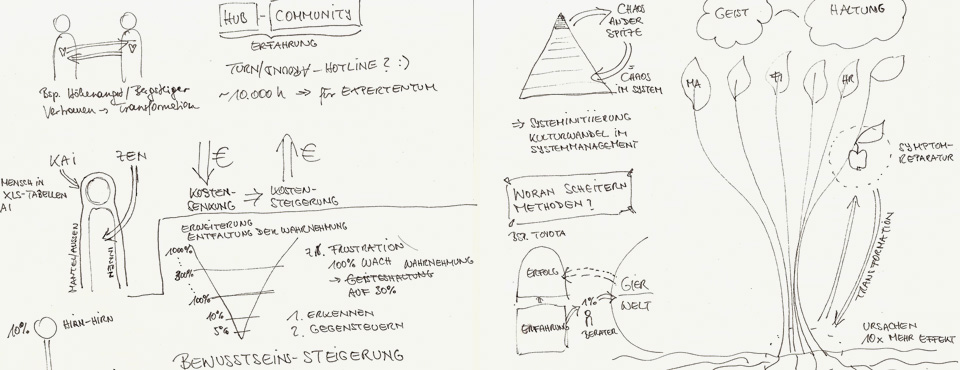 HUB - COMMUNITY
ERFAHRUNG
TURN/AROUND-HOTLINE? :)
~10.000h ⇒ für EXPERTENTUM
Bsp. Höhenangst/Bergsteiger
Vertrauen → Transformation
KAI
ZEN
MENSCH IN
XLS-TABELLEN
AI
MANTEL/AUSSEN
INNEN
€
€
KOSTEN-
SENKUNG
→ KOSTEN-
STEIGERUNG
ERWEITERUNG
ENTFALTUNG DER WAHRNEHMUNG
1000%
300%
100%
10%
5%
z.B. FRUSTRATION
100% WACH WAHRNEHMUNG
→ GEISTESHALTUNG
AUF 30%
1. ERKENNEN
2. GEGENSTEUERN
10%
HIRN-HIRN
BEWUSSTSEINS-STEIGERUNG
CHAOS
AN DER
SPITZE
=
CHAOS
IM SYSTEM
⇒ SYSTEMINITIIERUNG
KULTURWANDEL IM
SYSTEMMANAGEMENT
WORAN SCHEITERN
METHODEN?
BSP. TOYOTA
ERFOLG
ERFAHRUNG
1%
BERATER
GIER
WELT
GEIST
HALTUNG
MA
FI
HR
SYMPTOM-
REPARATUR
TRANSFORMATION
URSACHEN
10x MEHR EFFEKT